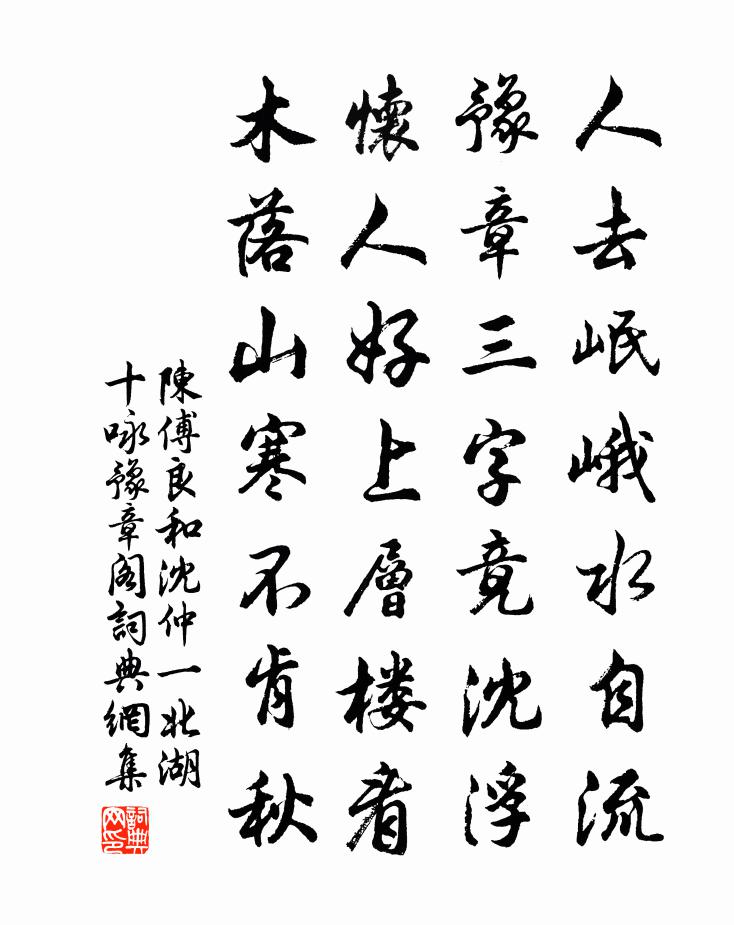 人去岷峨水自流
豫章三字竟沈浮
懷人好上層楼看
木落山寒不肯秋
陳傅良和沈仲一北湖
十咏豫章阁詞典網集
詞典
网印